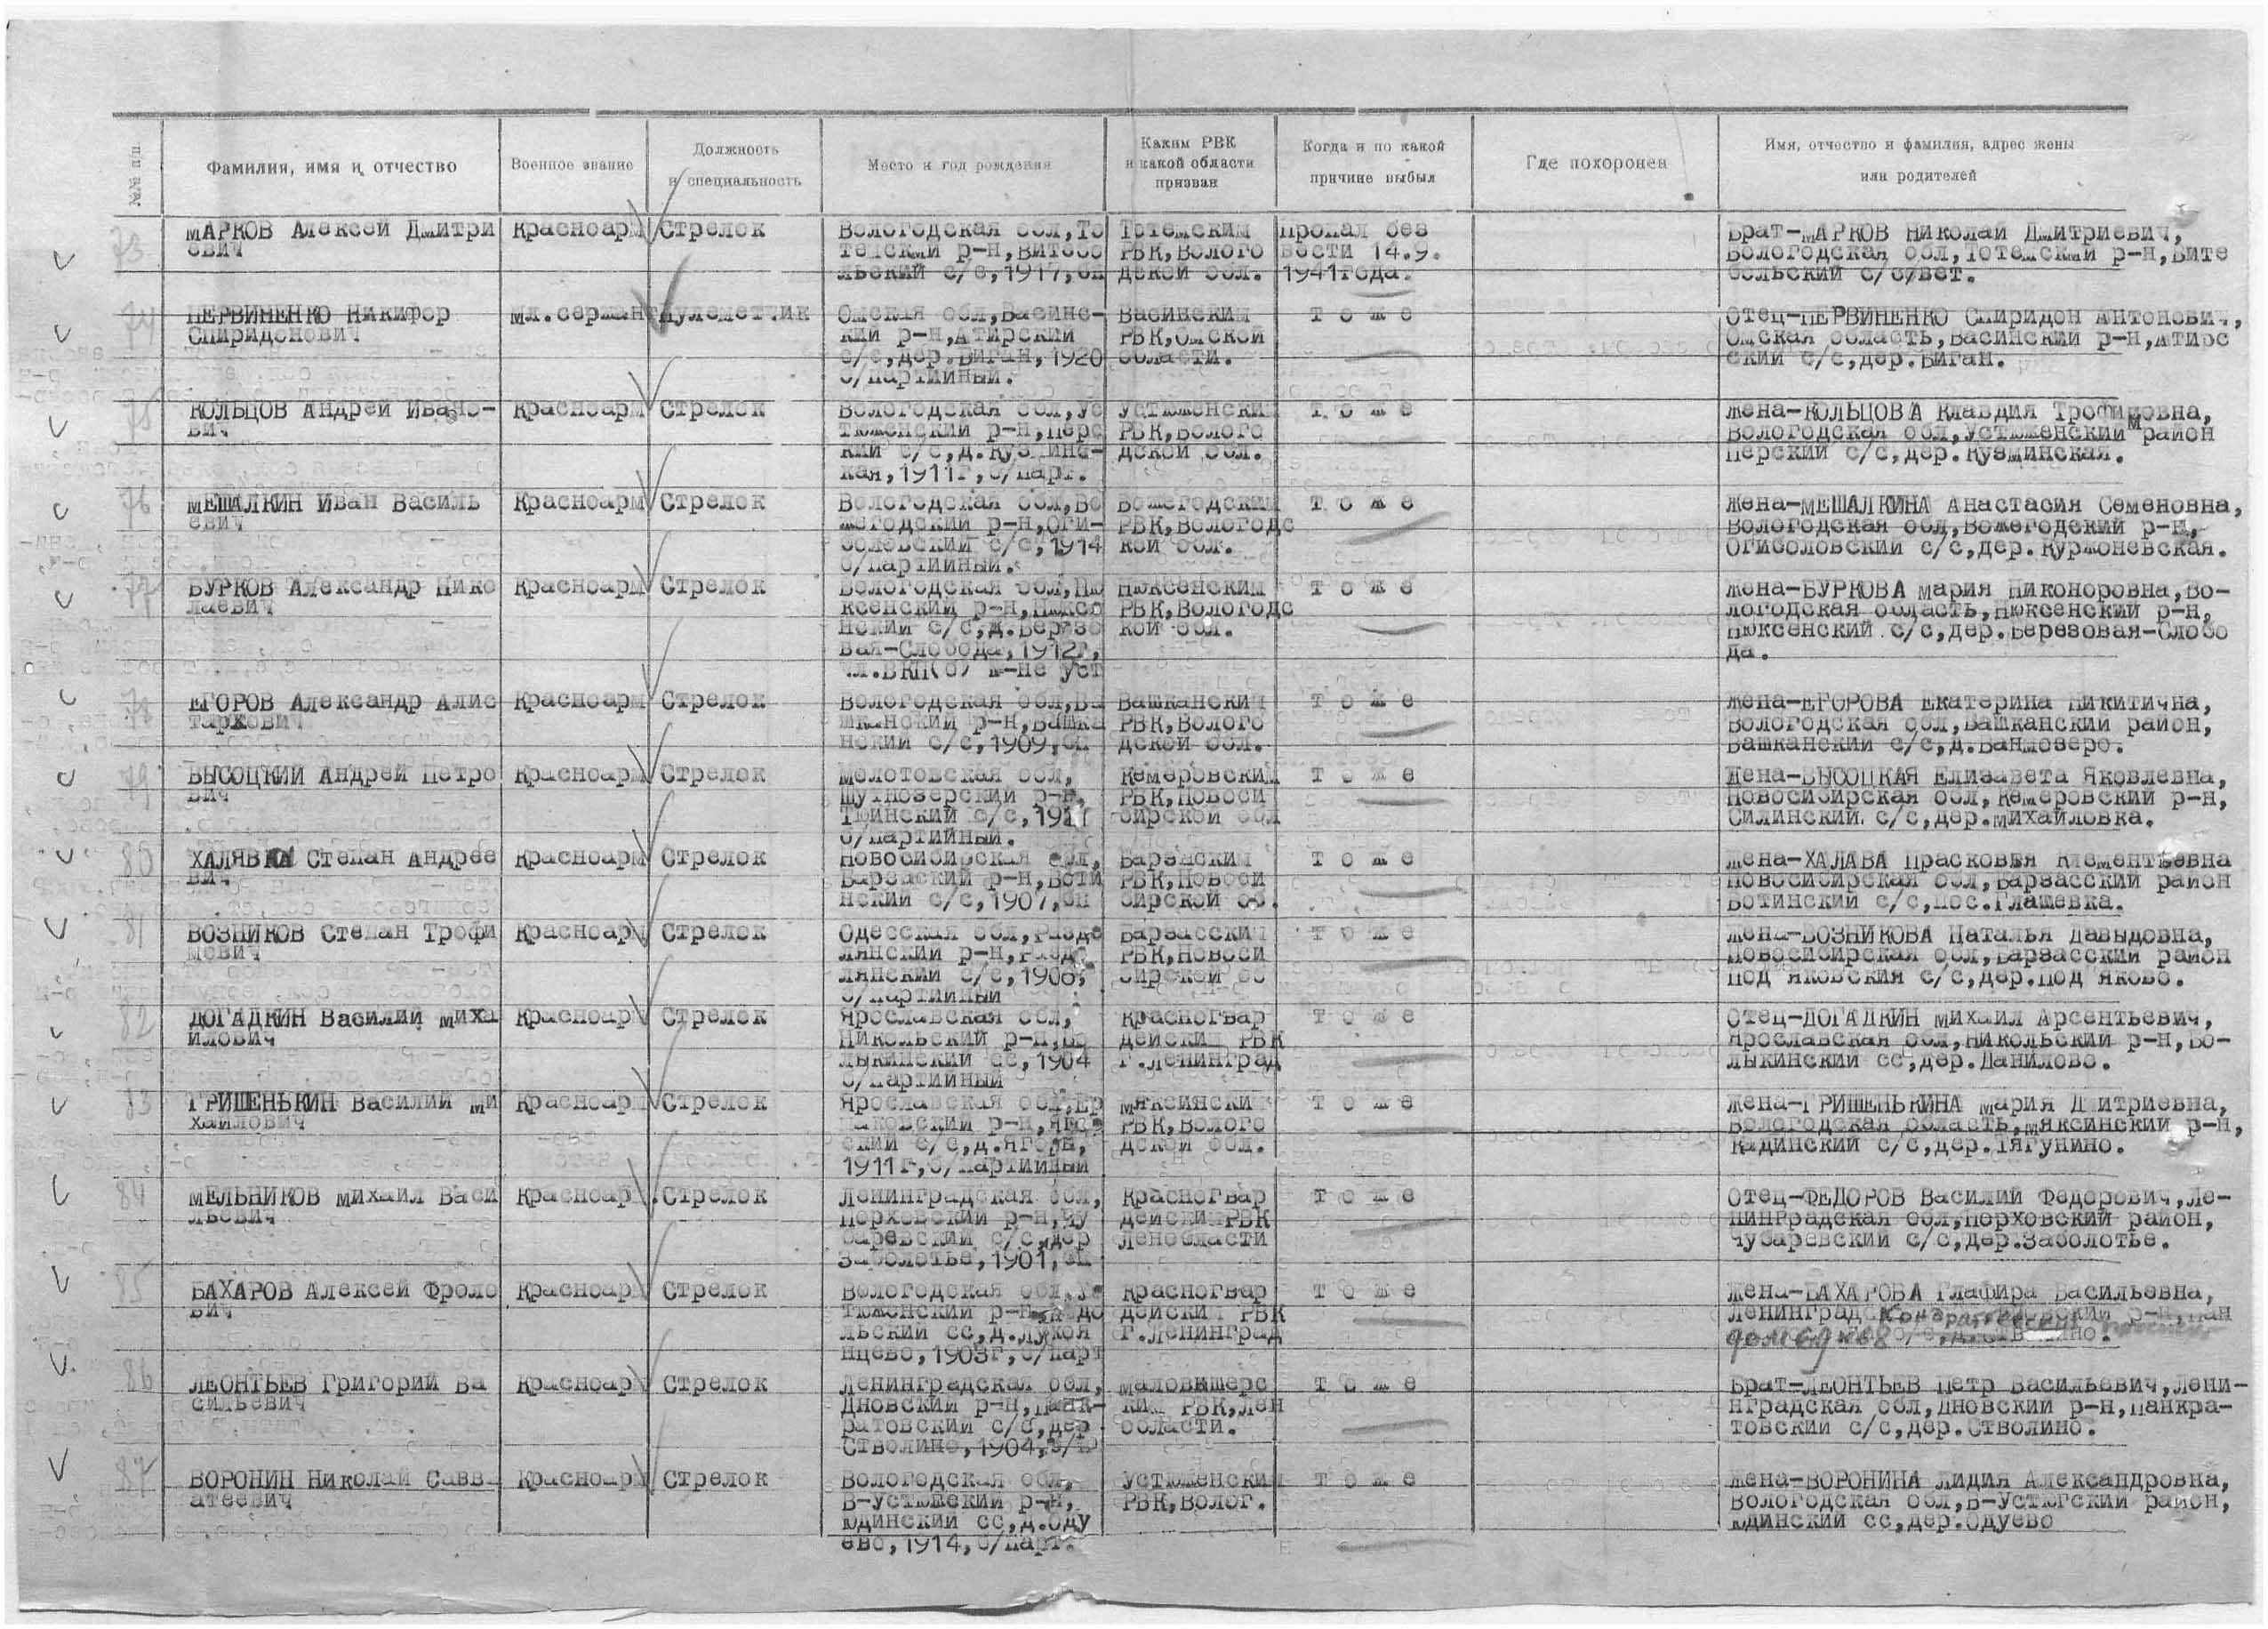 №№ п/п
Фамилия, имя и отчество
Военное звание
Должность
и специальность
Место и год рождения
Каким РВК
и какой области
призван
Когда и по какой
причине выбыл
Где похоронен
Имя, отчество и фамилия, адрес жены
или родителей
73
МАРКОВ Алексей Дмитри
евич
Красноарм
Стрелок
Вологодская обл,То
темский р-н,Витесо
льский с/с,1917,бп
Тотемским
РВК,Волого
дской обл.
пропал без
вести 14.9.
1941года.
Брат-МАРКОВ Николай Дмитриевич,
Вологодская обл,Тотемский р-н,Вите
сельский с/совет.
74
ПЕРВИНЕНКО Никифор
Спиридонович
мл.сержант
пулеметчик
Омская обл,Васинс-
кий р-н,Атирский
с/с,дер.Виган,1920
б/партийный.
Васинским
РВК,Омской
области.
т о ж е
Отец-ПЕРВИНЕНКО Спиридон Антонович,
Омская область,Васинский р-н,Атирс
ский с/с,дер.Виган.
75
КОЛЬЦОВ Андрей Ивано-
вич
Красноарм
Стрелок
Вологодская обл,Ус
тюженский р-н,Перс
кий с/с,д.Кузминс-
кая,1911г,б/парт.
Устюженским
РВК,Волого
дской обл.
Т о ж е
Жена-КОЛЬЦОВА Клавдия Трофимовна,
Вологодская обл,Устюженский район
Перский с/с,дер.Кузминская.
76
МЕШАЛКИН Иван Василь
евич
Красноарм
Стрелок
Вологодская обл,Во
жегодский р-н,Оги-
боловский с/с,1914
б/партийный.
Вожегодским
РВК,Вологодс
кой обл.
Т о ж е
Жена-МЕШАЛКИНА Анастасия Семеновна,
Вологодская обл,Вожегодский р-н,
Огиболовский с/с,дер.Куржоневская.
77
БУРКОВ Александр Нико
лаевич
Красноарм
Стрелок
Вологодская обл,Ню
ксенский р-н,Нюксе
нский с/с,д.Березо
вая-Слобода,1912г,
чл.ВКП(б) №-не уст
Нюксенским
РВК,Вологодс
кой обл.
Т о ж е
Жена-БУРКОВА Мария Никоноровна,Во-
логодская область,Нюксенский р-н,
Нюксенский с/с,дер.Березовая-Слобо
да.
78
ЕГОРОВ Александр Алис
тархович
Красноарм
Стрелок
Вологодская обл,Ва
шканский р-н,Вашка
нский с/с,1909,бп
Вашканским
РВК,Волого
дской обл.
Т о ж е
Жена-ЕГОРОВА Екатерина Никитична,
Вологодская обл,Вашканский район,
Вашканский с/с,д.Ванмозеро.
79
ВЫСОЦКИЙ Андрей Петро
вич
Красноарм
Стрелок
Молотовская обл,
Шутнозерский р-н,
Тюинский с/с,
б/партийный.
Кемеровским
РВК,Новоси
бирской обл
Т о ж е
Жена-ВЫСОЦКАЯ Елизавета Яковлевна,
Новосибирская обл,Кемеровский р-н,
Силинский с/с,дер.Михайловка.
80
Степан Андрее
вич
Красноарм
Стрелок
Новосибирская обл,
Барзаский р-н,Воти
нский с/с,1907,бп
Барзаским
РВК,Новоси
бирской об.
Т о ж е
Жена-ХАЛАВА Прасковья Клементьевна
Новосибирская обл,Барзасский район
Вотинский с/с,пос.Глашевка.
81
ВОЗНИКОВ Степан Трофи
мович
Красноар
Стрелок
Одесская обл,Разде
лянский р-н,Разде
лянский с/с,1908,
б/партийный
Барзасским
РВК,Новоси
бирской об
т о ж е
Жена-ВОЗНИКОВА Наталья Давыдовна,
Новосибирская обл,Барзасский район
Под Яковский с/с,дер.Под Яково.
82
ДОГАДКИН Василий Миха
илович
Красноар
Стрелок
Ярославская обл,
Никольский р-н,Во
лыкинский сс,1904
б/партийный
Красногвар
дейским РВК
г.Ленинград
Т о ж е
Отец-ДОГАДКИН Михаил Арсентьевич,
Ярославская обл,Никольский р-н,Во-
лыкинский сс,дер.Данилово.
83
ГРИШЕНЬКИН Василий Ми
хайлович
Красноар
Стрелок
Ярославская обл,Ер
маковский р-н,
ский с/с,
1911г,б/партийный
Мяксински
РВК,Волого
дской обл.
Т о ж е
Жена-ГРИШЕНЬКИНА Мария Дмитриевна,
Вологодская область,Мяксинский р-н,
Кадинский с/с,дер.Тягунино.
84
МЕЛЬНИКОВ Михаил Васи
льевич
Красноар
Стрелок
Ленинградская обл,
Порховский р-н,Чу
баревский с/с,дер
Заболотье,1901,бп
Красногвар
дейским РВК
Ленобласти
Т о ж е
Отец-ФЕДОРОВ Василий Федорович,Ле-
нинградская обл,Порховский район,
Чубаревский с/с,дер.Заболотье.
85
БАХАРОВ Алексей Фроло
вич
Красноар
Стрелок
Вологодская обл,Ус
тюженский р-н,
льский сс,д.Лукоя
нцево,1903г,б/парт
Красногвар
дейским РВК
г.Ленинград
Т о ж е
Жена-БАХАРОВА Глафира Васильевна,
Ленинград Кондратьевский
дом 69 кв 8
86
ЛЕОНТЬЕВ Григорий Ва
сильевич
Красноар
Стрелок
Ленинградская обл,
Дновский р-н,Панк-
ратовский с/с,дер
Стволино,1904,б/п
Маловишерс
ким РВК,Лен
области.
Т о ж е
Брат-ЛЕОНТЬЕВ Петр Васильевич,Лени-
нградская обл,Дновский р-н,Панкра-
товский с/с,дер.Стволино.
87
ВОРОНИН Николай Савв
атеевич
Красноар
Стрелок
Вологодская обл,
В-Устюжский р-н,
Юдинский сс,д.Оду
ево,1914,б/парт.
Устюженским
РВК,Волог.
т о ж е
Жена-ВОРОНИНА Лидия Александровна,
Вологодская обл,В-Устюгский район,
Юдинский сс,дер.Одуево